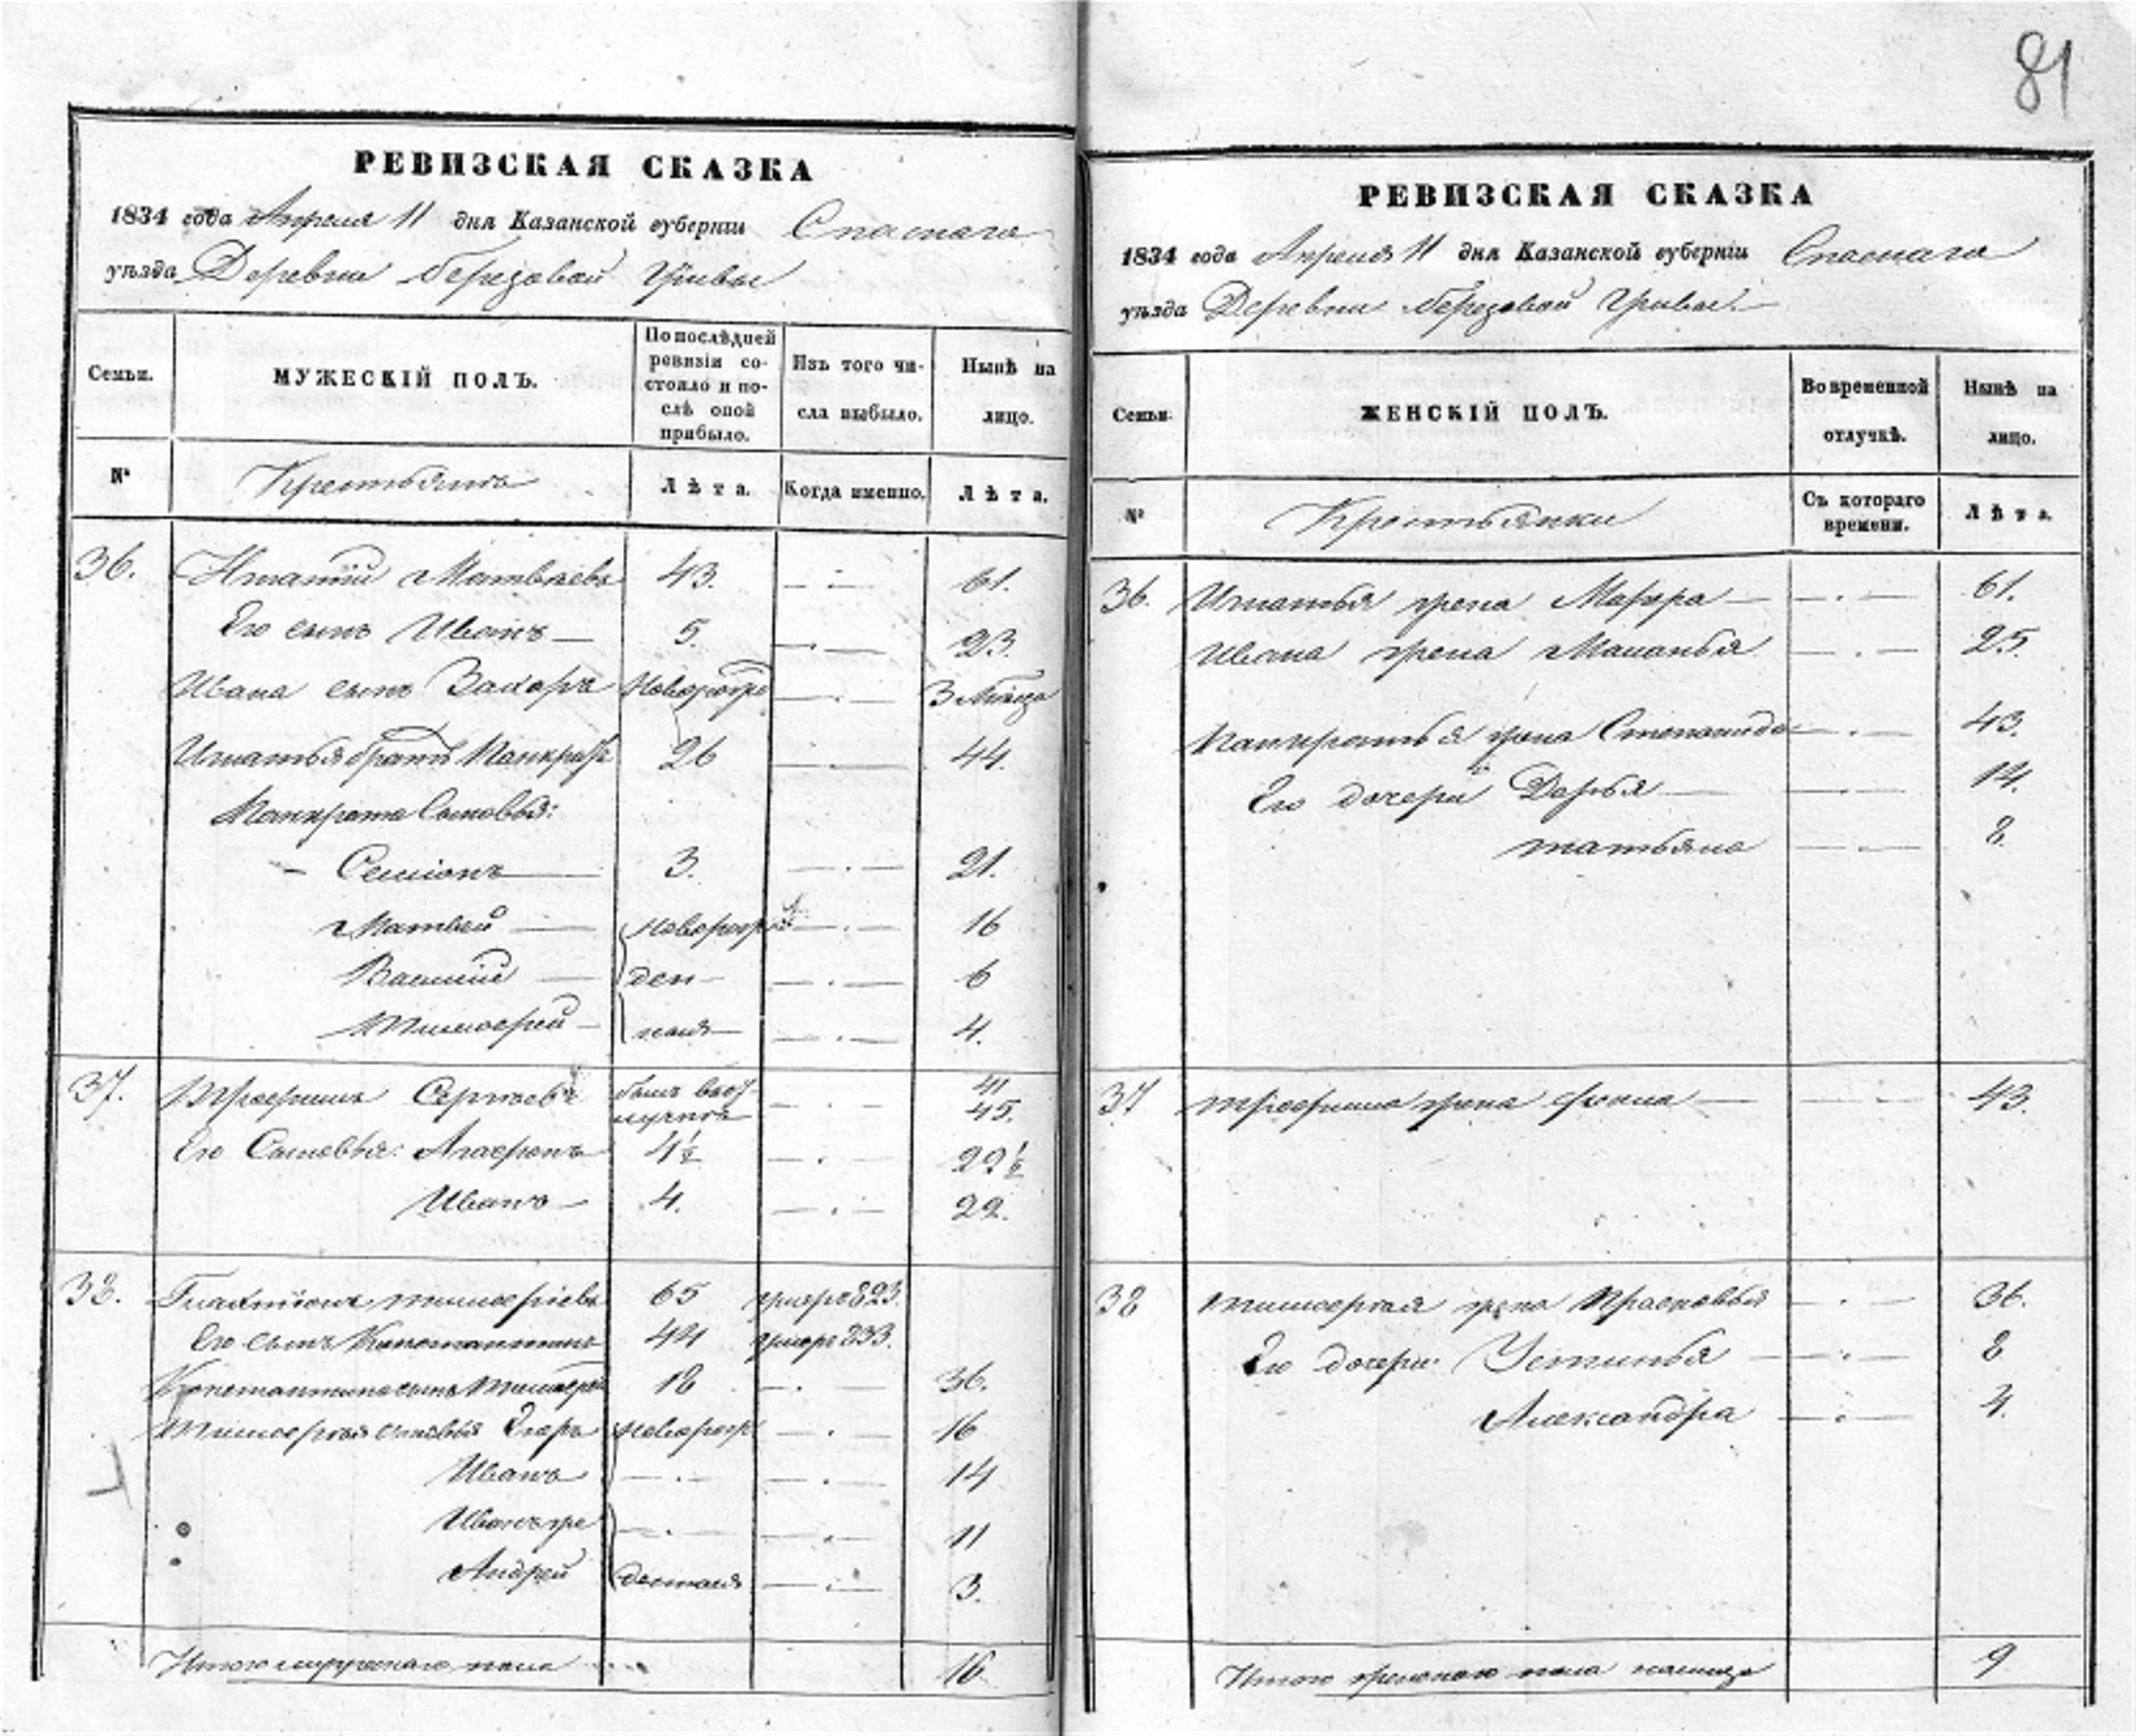 81
РЕВИЗСКАЯ СКАЗКА
1834 года Апреля 11 дня Казанской губерніи Спаскаго
уѣзда Деревни Березовой Гривы
Семьи.
МУЖЕСКІЙ ПОЛЪ.
По послѣдней ревизіи состояло и послѣ оной прибыло.
Изъ того числа выбыло.
Нынѣ на лицо.
№ Крестьянъ Лѣта. Когда именно. Лѣта.
36. Игнатій Матвѣевъ 43. 61.
Его сынъ Иванъ 5. 23.
Ивана сынъ Захаръ 3
Игнатья братъ 26 44.
Панкрата Сыновья:
Семіонъ 3. 21.
Матвей 16
Василій ден 6
Тимофей 4.
37. Трофимъ Сергѣевъ 41
45.
Его Сыновья: Агафонъ 4½ 22½
Иванъ 4. 22.
38. 65 823.
Его сынъ Константинъ 44 833.
Константина сынъ Тимофей 18 36.
Тимофея сыновья Егоръ 16
Иванъ 14
Иванъ же 11
Андрей 3.
Итого мужеска пола 16
РЕВИЗСКАЯ СКАЗКА
1834 года Апреля 11 дня Казанской губерніи Спаскаго
уѣзда Деревни Березовой Гривы
Семьи.
ЖЕНСКІЙ ПОЛЪ.
Во временной отлучкѣ.
Нынѣ на лицо.
№ Крестьянки Съ котораго времени. Лѣта.
36. Игнатья жена Марфа 61.
Ивана жена Маланья 25.
Панкратья жена Степанида 43.
Его дочери Дарья 14.
татьяна 8.
37 трофима жена 43.
38 тимофея жена Прасковья 36.
Его дочери Устинья 8
Александра 4.
Итого женскаго пола налицо 9